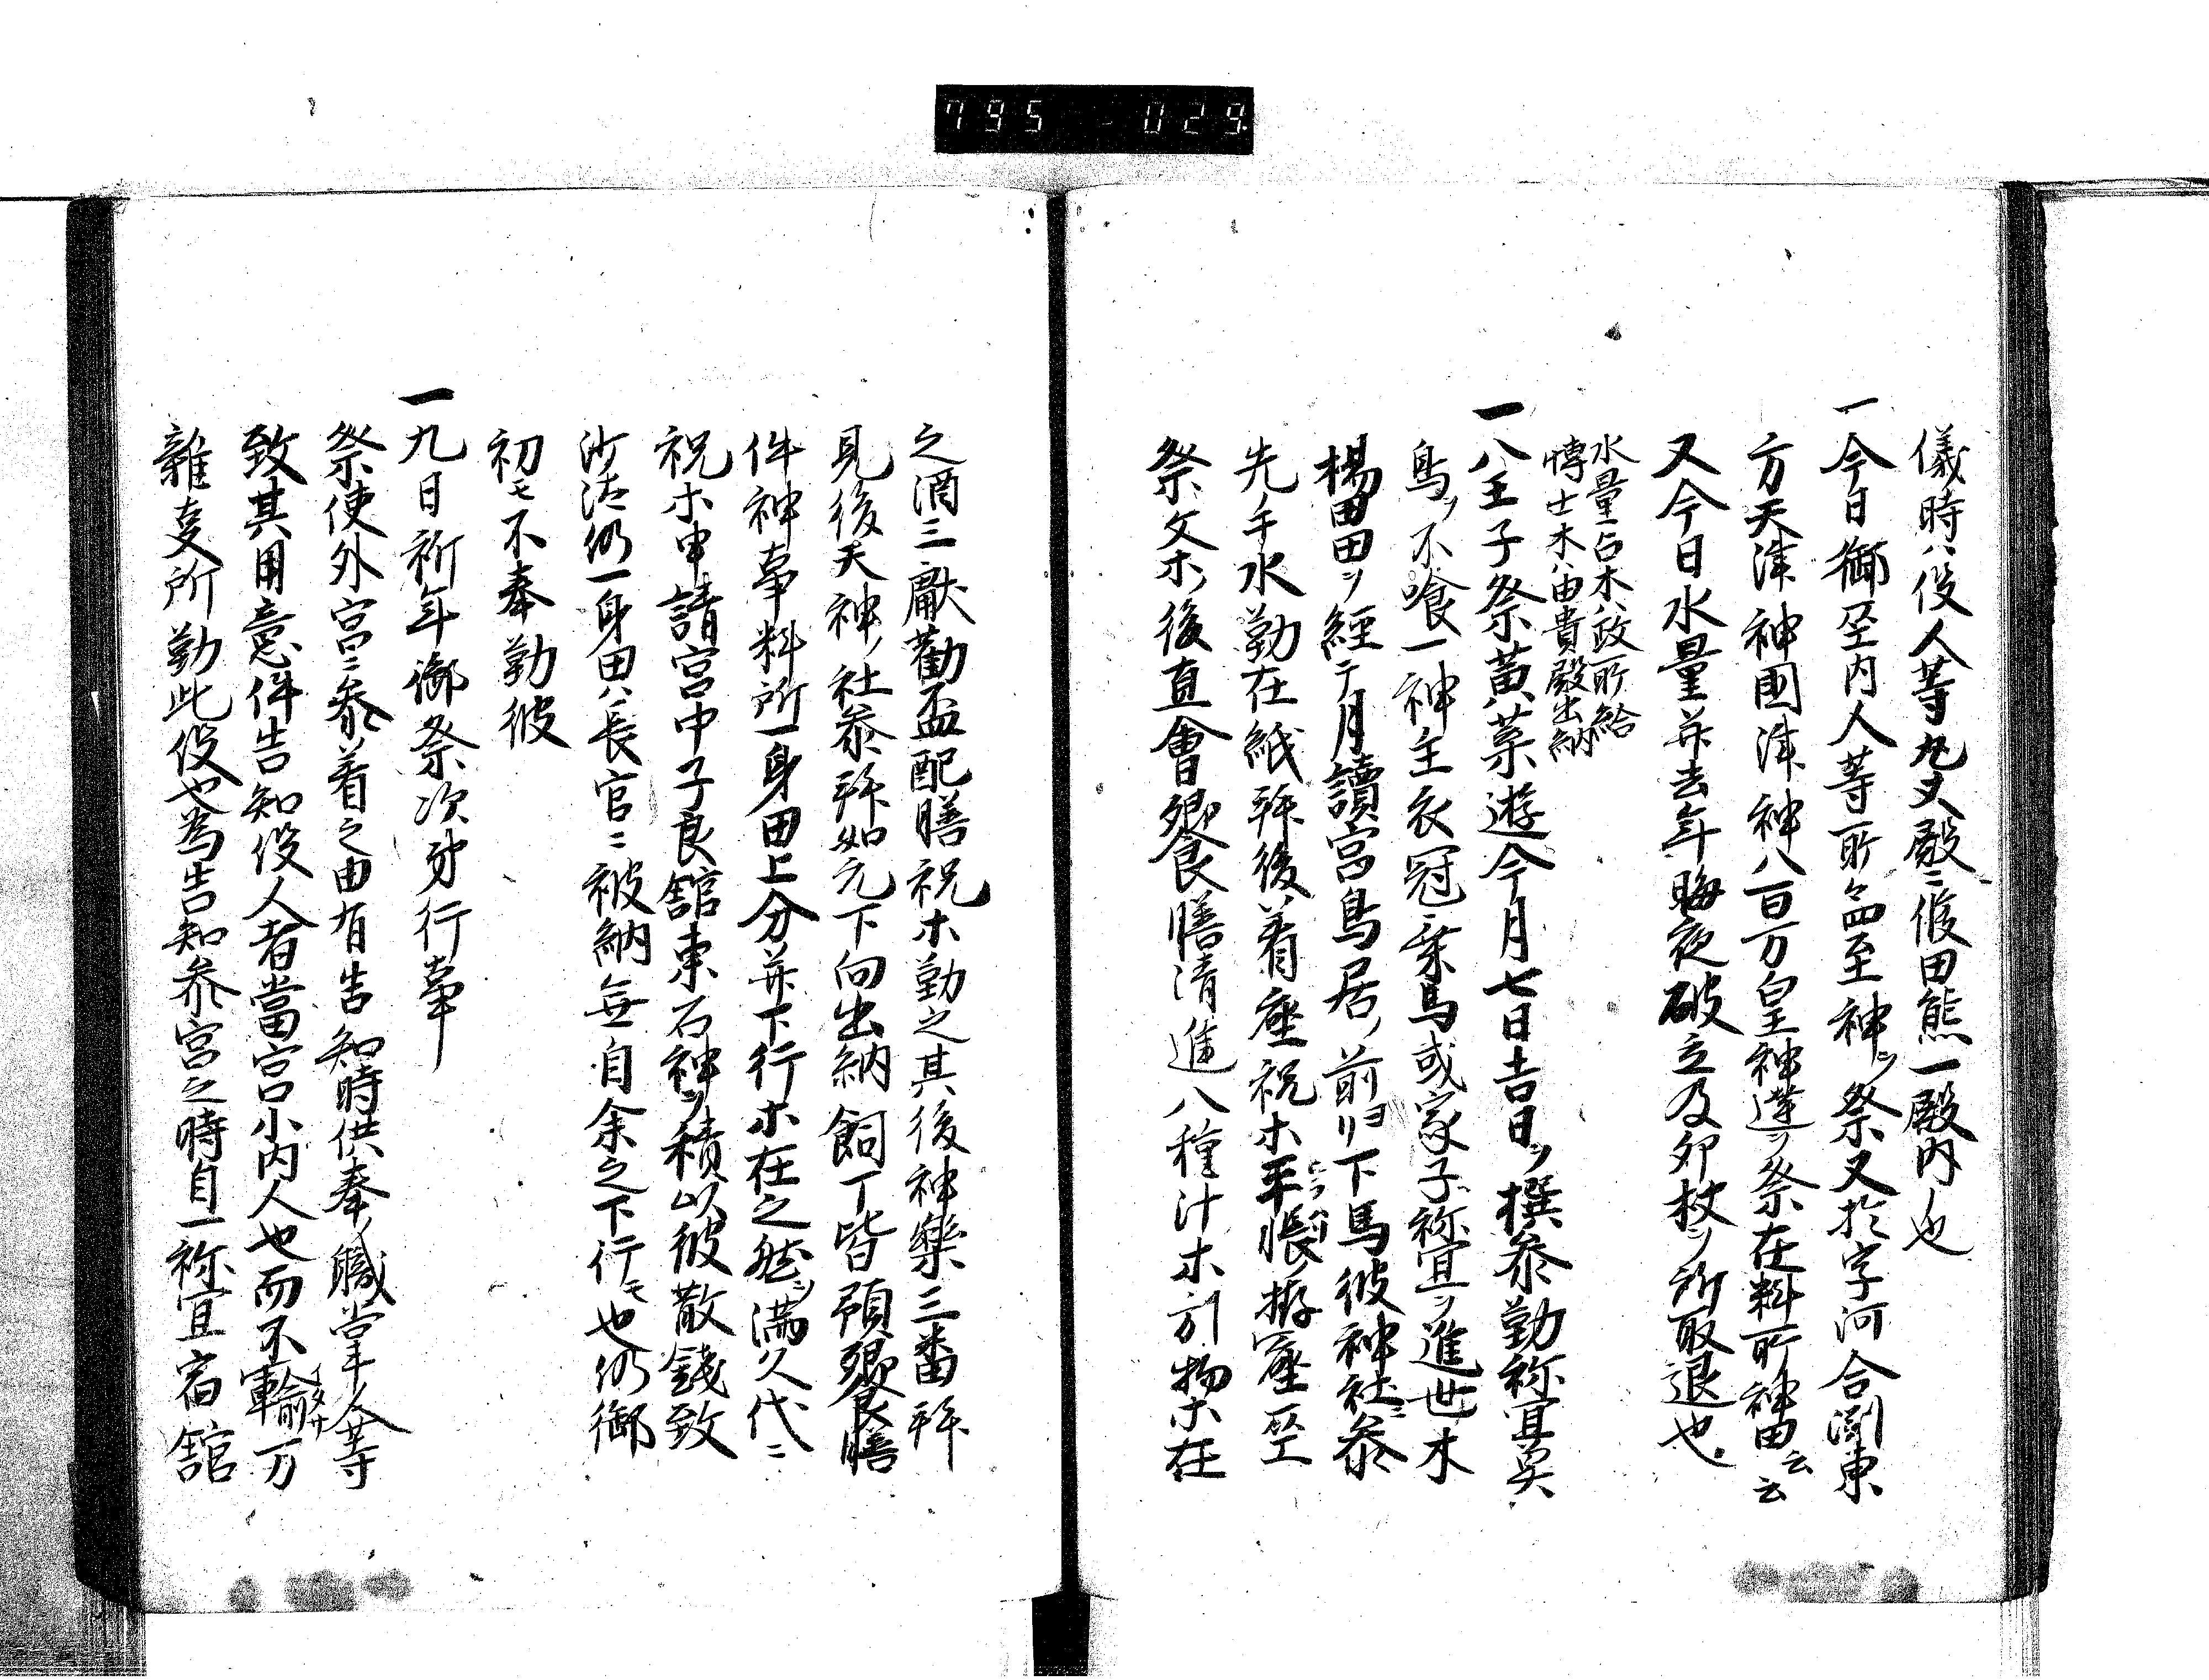 795 029
儀時ハ役人等九丈殿ニ候田熊一殿内也
一今日御巫内人等所々四至神ヲ祭又於字河合淵東
方天津神國津神八百万皇神達ヲ祭在料所神田云云
又今日水量并去年晦夜破立及卯杖ヲ所取退也
水量占木ハ政所給
博士木ハ由貴殿出納
一八王子祭黄葉遊今月七日吉日ヲ撰参勤祢宜矣
鳥ヲ不喰一神主衣冠ニ乗馬或家子祢宜ヲ進世木
楊田田ヲ経テ月讀宮鳥居ノ前ヨリ下馬彼神社ニ参
先手水勤在紙拜後着座祝木平帳ノ搢座巫
祭文木ノ後直會饗膳清進八種汁木引物木在
之酒三献勸盃配膳祝木勤之其後神樂三番拜
見後天神ノ社参拜如元下向出納飼丁皆預饗膳
件神事料所一身田上分并下行木在之然ヲ満久代ニ
祝木申請宮中子良舘東石神ヲ積以彼散錢致
沙汰仍一身田ハ長官ニ被納無自余之下行モ也仍御
初モ不奉勤彼
一九日祈年御祭次第行事
祭使外宮ニ参着之由有告知時供奉ノ職掌人等
致其用意件告知役人者當宮小内人也而不輸万
雜事所勤此役也為告知参宮之時自一祢宜宿舘